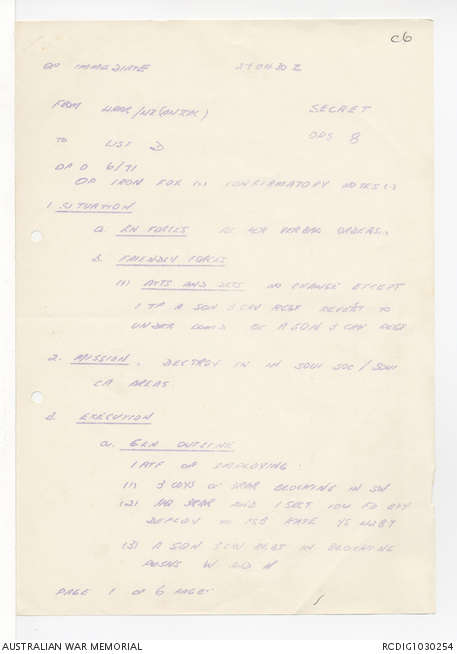 C6
OP IMMEDIATE 290430Z
FROM 4RAR/NZ(ANZAC) SECRET
TO LIST D OPS 8
OP O 6/71
OP IRON FOX (.) CONFIRMATORY NOTES (.)
1. SITUATION
a. EN FORCES AS PER VERBAL ORDERS.
b. FRIENDLY FORCES
(1) ATTS AND DETS NO CHANGE EXCEPT
1 TP A SQN 3 CAV REGT REVERT TO
UNDER COMD OF A SQN 3 CAV REGT
2. MISSION. DESTROY EN IN SOUI /SOUI
CA AREAS
3. EXECUTION
a. GEN OUTLINE
1 ATF OP EMPLOYING
(1) 3 COYS OF 3RAR BLOCKING IN
(2) HQ 3RAR AND 1 SECT 104 FD BTY
DEPLOY TO FSB KATE YS
(3) A SQN 3 CAV REGT IN BLOCKING
POSNS W
PAGE 1 OF 6 PAGES
1
AUSTRALIAN WAR MEMORIAL
RCDIG1030254